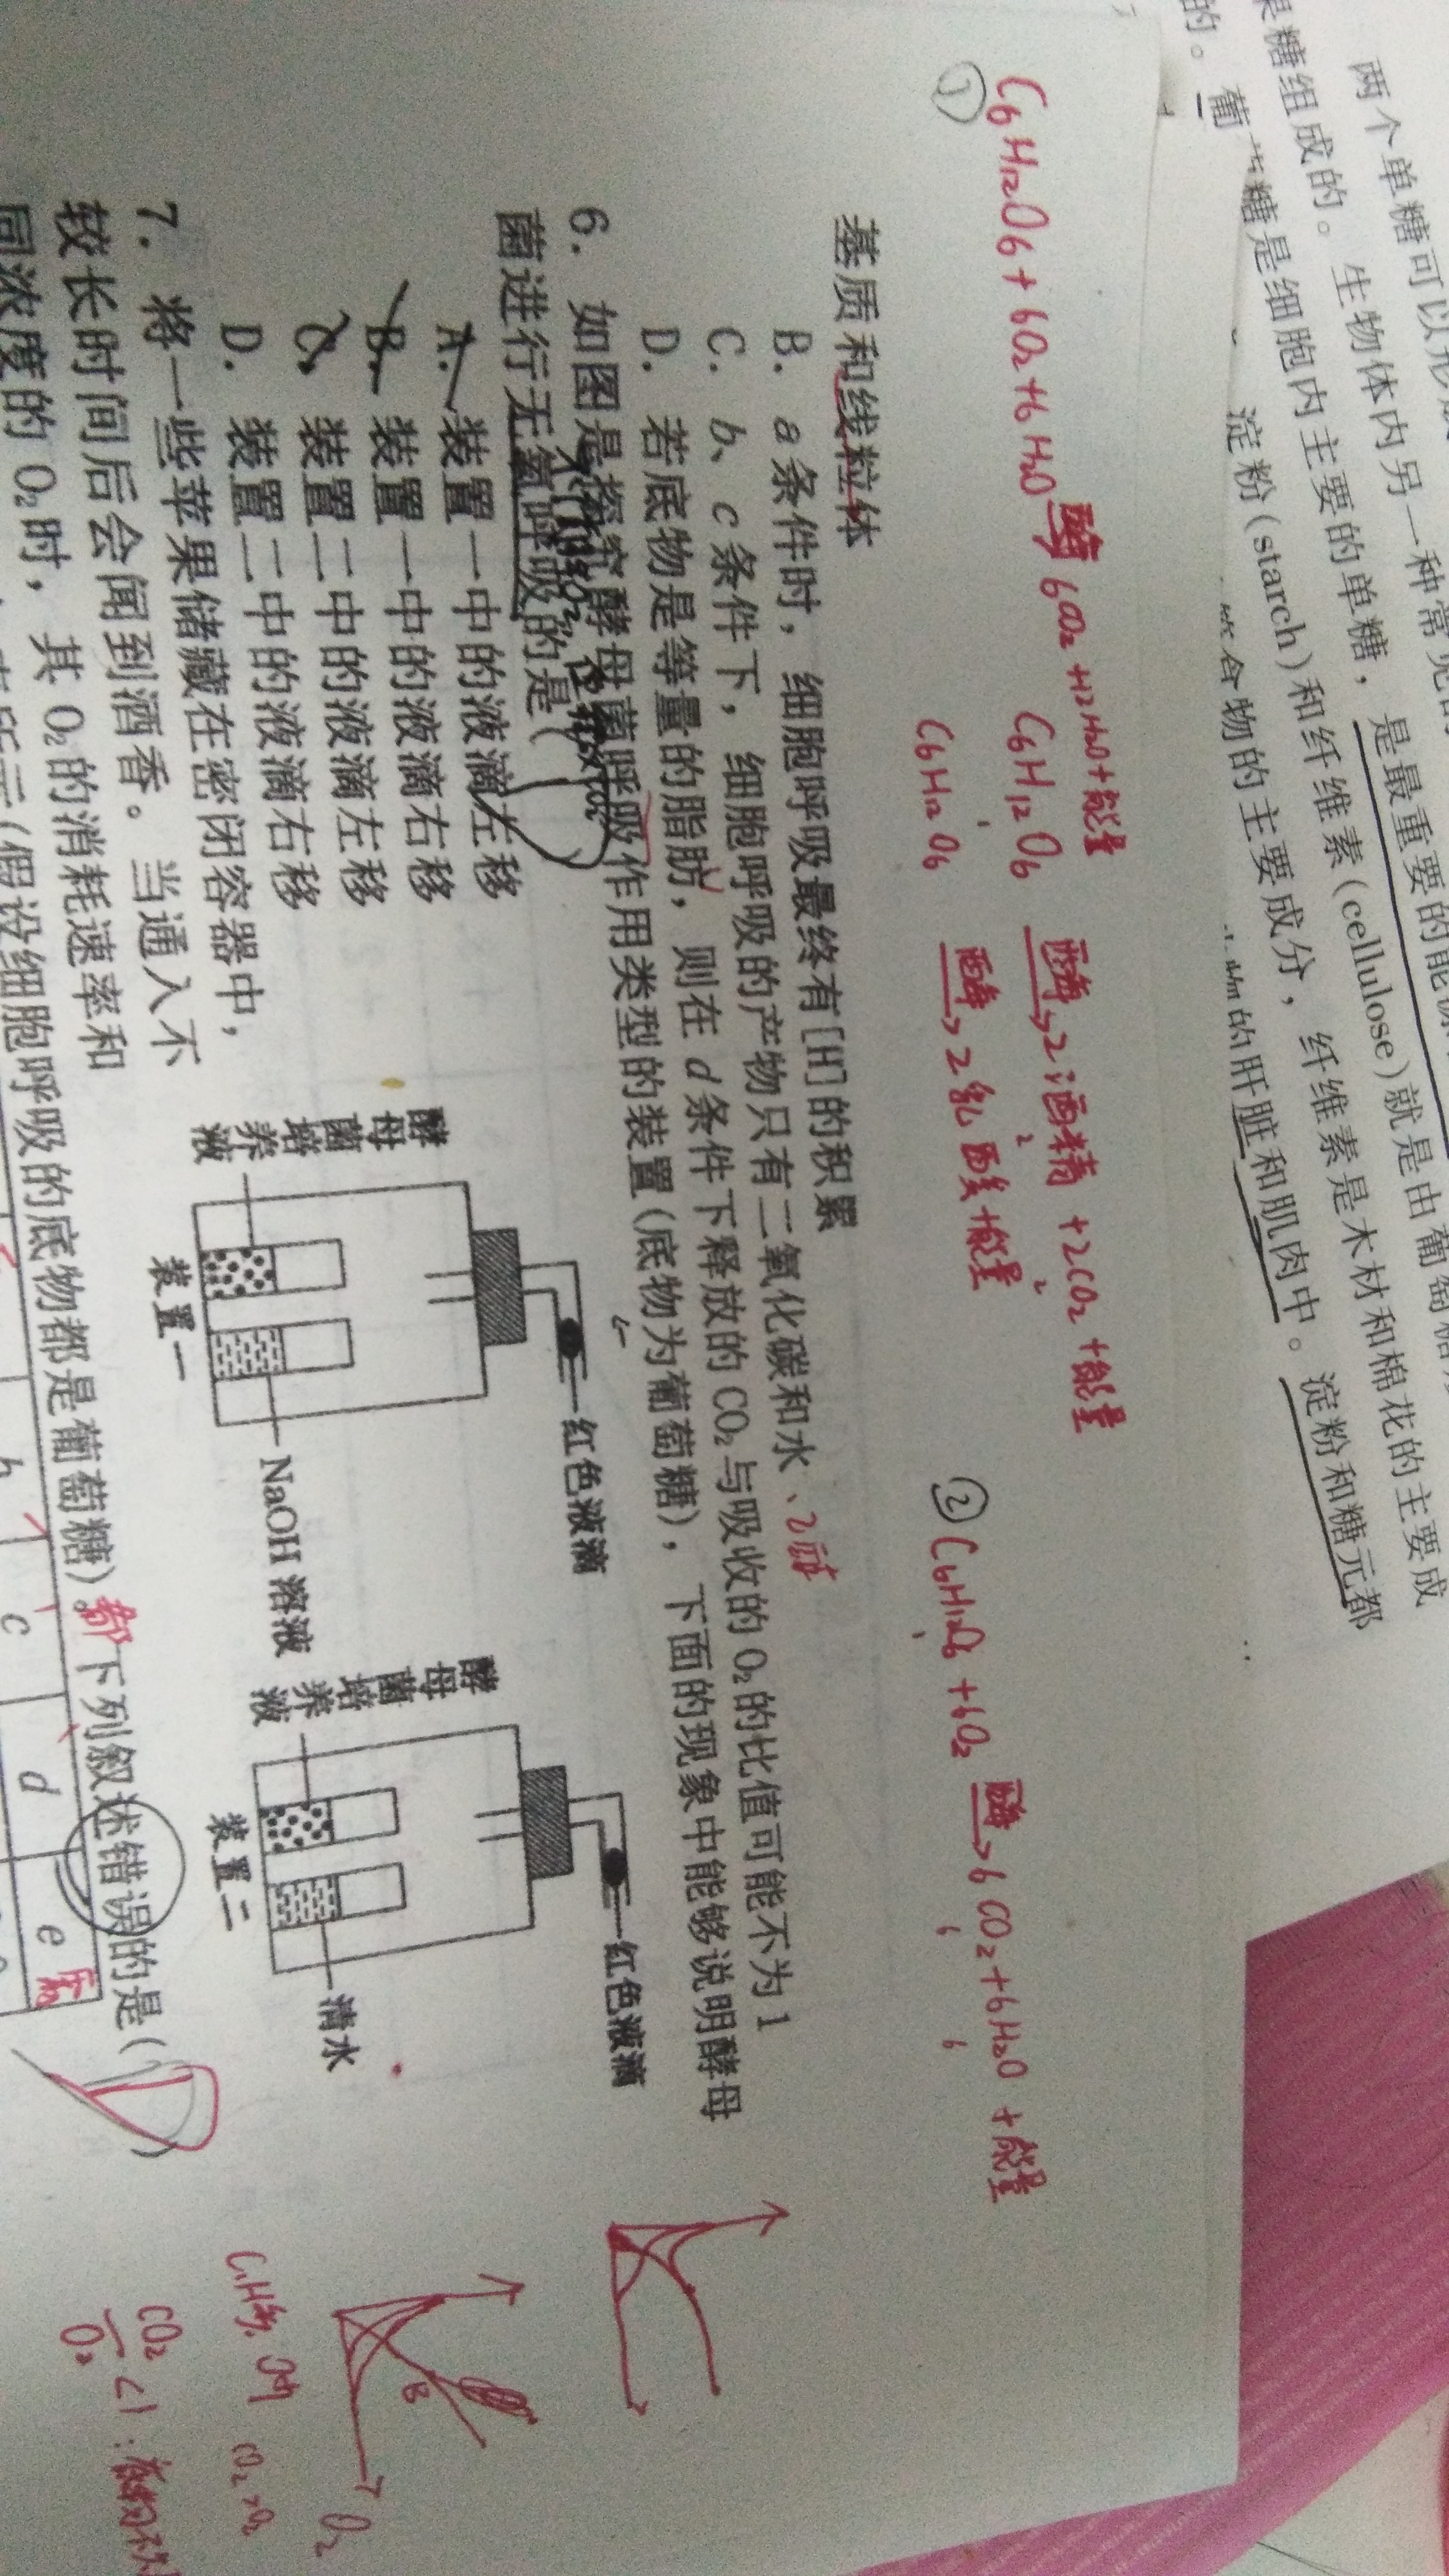 两个单糖可以形
果糖组成的。生物体内另一种常见的
的。葡萄糖是细胞内主要的单糖，是最重要的能源
淀粉(starch)和纤维素(cellulose)就是由葡萄糖
物的主要成分，纤维素是木材和棉花的主要成
的肝脏和肌肉中。淀粉和糖元都
① C6H12O6+6O2+6H2O 酶 6CO2+12H2O+能量
C6H12O6 酶→ 2酒精+2CO2+能量
C6H12O6 酶→ 2乳酸+能量
② C6H12O6+6O2 酶→ 6CO2+6H2O+能量
基质和线粒体
B. a条件时，细胞呼吸最终有[H]的积累
C. b、c条件下，细胞呼吸的产物只有二氧化碳和水、
D. 若底物是等量的脂肪，则在d条件下释放的CO2与吸收的O2的比值可能不为1
6. 如图是探究酵母菌呼吸作用类型的装置(底物为葡萄糖)，下面的现象中能够说明酵母
菌进行无氧呼吸的是(
A. 装置一中的液滴左移
B. 装置一中的液滴右移
C. 装置二中的液滴左移
D. 装置二中的液滴右移
红色液滴
酵母菌培养液
NaOH溶液
装置一
红色液滴
酵母菌培养液
清水
装置二
7. 将一些苹果储藏在密闭容器中，
较长时间后会闻到酒香。当通入不
同浓度的O2时，其O2的消耗速率和
(假设细胞呼吸的底物都是葡萄糖)。下列叙述错误的是( D )
b c d e
B
O2
CO2 >O2
CO2/O2 <1：